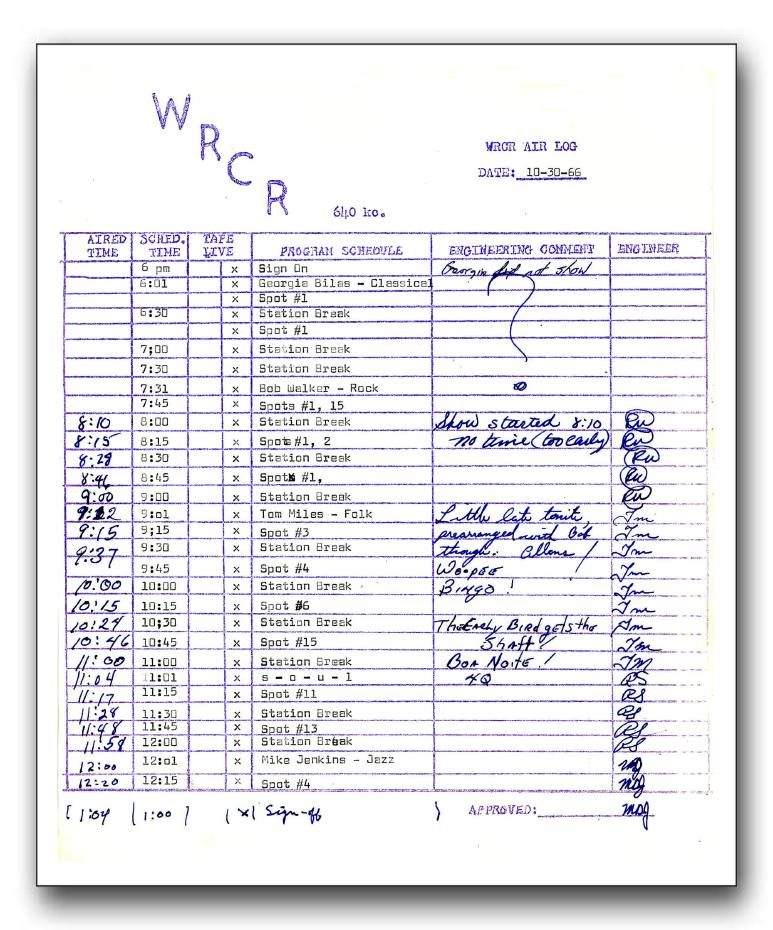 WRCR
WRCR AIR LOG
DATE: 10-30-66
640 kc.
AIRED TIME SCHED. TIME TAPE LIVE PROGRAM SCHEDULE ENGINEERING COMMENT ENGINEER
6 pm x Sign On Georgia did not show
6:01 x Georgia Bilas - Classical
x Spot #1
6:30 x Station Break
x Spot #1
7;00 x Station Break
7:30 x Station Break
7:31 x Bob Walker - Rock
7:45 x Spots #1, 15
8:10 8:00 x Station Break Show started 8:10 RW
8:15 8:15 x Spots #1, 2 no time (too early) RW
8:29 8:30 x Station Break RW
8:46 8:45 x Spots #1, RW
9:00 9:00 x Station Break RW
9:12 9:01 x Tom Miles - Folk Little late tonite, Tm
9:15 9;15 x Spot #3 prearranged with Bob Tm
9:37 9:30 x Station Break though. Allons! Tm
9:45 x Spot #4 Woopee Tm
10:00 10:00 x Station Break Bingo! Tm
10:15 10:15 x Spot #6 Tm
10:29 10;30 x Station Break The Early Bird gets the Tm
10:46 10:45 x Spot #15 Shaft! Tm
11:00 11:00 x Station Break Boa Noite! TM
11:04 11:01 x s - o - u - l 4Q RS
11:17 11:15 x Spot #11 RS
11:28 11:30 x Station Break RS
11:48 11:45 x Spot #13 RS
11:58 12:00 x Station Break RS
12:00 12:01 x Mike Jenkins - Jazz mg
12:20 12:15 x Spot #4 mg
[ 1:04 | 1:00 ] | x | Sign-off ) APPROVED: mg